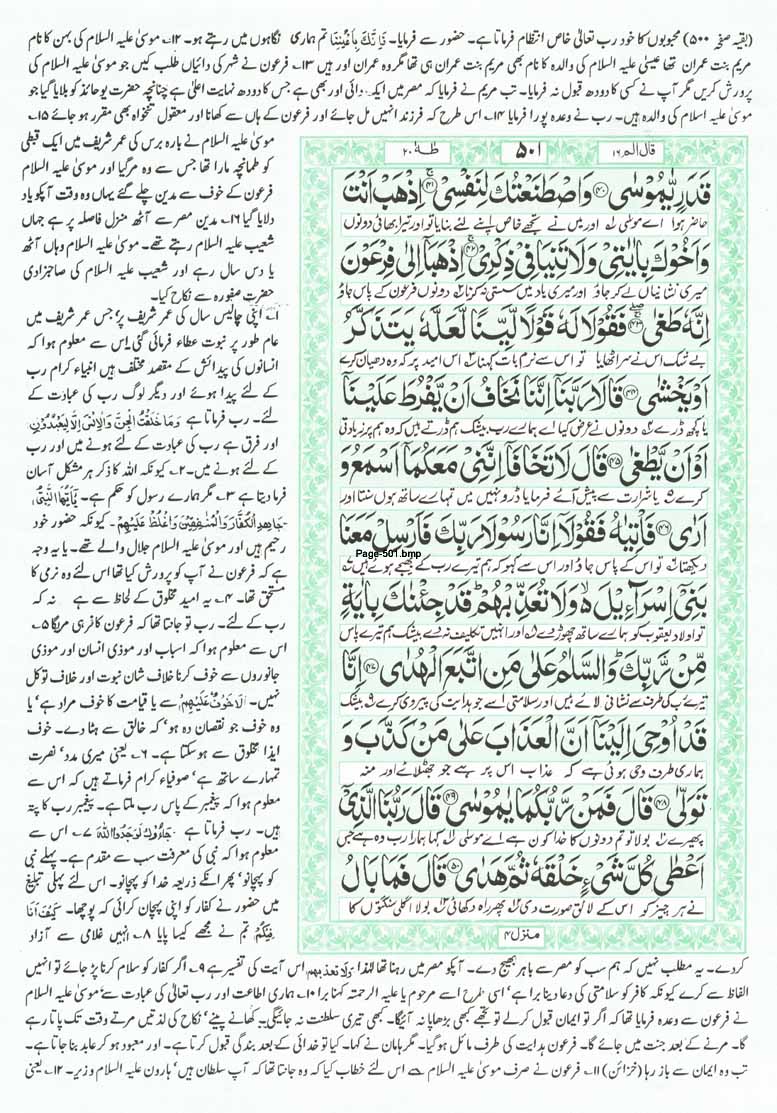 (بقیہ صفحہ ۵۰۰) محبوبوں کا خود رب تعالیٰ خاص انتظام فرماتا ہے۔ حضور سے فرمایا۔ فَاِنَّكَ بِاَعْيُنِنَا تم ہماری نگاہوں میں رہتے ہو۔ ۱۲؎ موسیٰ علیہ السلام کی بہن کا نام
مریم بنت عمران تھا عیسیٰ علیہ السلام کی والدہ کا نام بھی مریم بنت عمران ہی تھا مگر وہ عمران اور ہیں ۱۳؎ فرعون نے شہر کی دائیاں طلب کیں جو موسیٰ علیہ السلام کی
پرورش کریں مگر آپ نے کسی کا دودھ قبول نہ فرمایا۔ تب مریم نے فرمایا کہ مصر میں ایک دائی اور بھی ہے جس کا دودھ نہایت اعلیٰ ہے چنانچہ حضرت یوحانذ کو بلایا گیا جو
موسیٰ علیہ السلام کی والدہ ہیں۔ رب نے وعدہ پورا فرمایا ۱۴؎ اس طرح کہ فرزند انہیں مل جائے اور فرعون کے ہاں سے کھانا اور معقول تنخواہ بھی مقرر ہو جائے ۱۵؎
موسیٰ علیہ السلام نے بارہ برس کی عمر شریف میں ایک قبطی
کو طمانچہ مارا تھا جس سے وہ مر گیا اور موسیٰ علیہ السلام
فرعون کے خوف سے مدین چلے گئے یہاں وہ وقت آپکو یاد
دلایا گیا ۱۶؎ مدین مصر سے آٹھ منزل فاصلہ پر ہے جہاں
شعیب علیہ السلام رہتے تھے۔ موسیٰ علیہ السلام وہاں آٹھ
یا دس سال رہے اور شعیب علیہ السلام کی صاحبزادی
حضرت صفورہ سے نکاح کیا۔
۱؎ اپنی چالیس سال کی عمر شریف پر جس عمر شریف میں
عام طور پر نبوت عطاء فرمائی گئی اس سے معلوم ہوا کہ
انسانوں کی پیدائش کے مقصد مختلف ہیں انبیاء کرام رب
کے لئے پیدا ہوئے اور دیگر لوگ رب کی عبادت کے
لئے۔ رب فرماتا ہے وَمَا خَلَقْتُ الْجِنَّ وَالْاِنْسَ اِلَّا لِيَعْبُدُوْنِ
اور فرق ہے رب کی عبادت کے لئے ہونے میں اور رب
کے لئے ہونے میں۔ ۲؎ کیونکہ اللہ کا ذکر ہر مشکل آسان
فرما دیتا ہے ۳؎ مگر ہمارے رسول کو حکم ہے۔ يٰٓاَيُّهَا النَّبِيُّ
جَاهِدِ الْكُفَّارَ وَالْمُنٰفِقِيْنَ وَاغْلُظْ عَلَيْهِمْ۔ کیونکہ حضور خود
رحیم ہیں اور موسیٰ علیہ السلام جلال والے تھے۔ یا یہ وجہ
ہے کہ فرعون نے آپ کو پرورش کیا تھا اس لئے وہ نرمی کا
مستحق تھا۔ ۴؎ یہ امید مخلوق کے لحاظ سے ہے نہ کہ
رب کے لئے۔ رب تو جانتا تھا کہ فرعون کافر ہی مریگا ۵؎
اس سے معلوم ہوا کہ اسباب اور موذی انسان اور موذی
جانوروں سے خوف کرنا خلاف شان نبوت اور خلاف توکل
نہیں۔ اَلَا خَوْفٌ عَلَيْهِمْ سے یا قیامت کا خوف مراد ہے یا
وہ خوف جو نقصان دہ ہو کہ خالق سے ہٹا دے۔ خوف
ایذا مخلوق سے ہو سکتا ہے۔ ۶؎ یعنی میری مدد، نصرت
تمہارے ساتھ ہے، صوفیاء کرام فرماتے ہیں کہ اس سے
معلوم ہوا کہ پیغمبر کے پاس رب ملتا ہے۔ پیغمبر رب کا پتہ
ہیں۔ رب فرماتا ہے جَآءُوْكَ لَوَجَدُوا اللّٰهَ ۷؎ اس سے
معلوم ہوا کہ نبی کی معرفت سب سے مقدم ہے۔ پہلے نبی
کو پہچانو، پھر انکے ذریعہ خدا کو پہچانو۔ اس لئے پہلی تبلیغ
میں حضور نے کفار کو اپنی پہچان کرائی کہ پوچھا۔ كَيْفَ اَنَا
فِيْكُمْ تم نے مجھے کیسا پایا ۸؎ انہیں غلامی سے آزاد
قال الم ۱۶
۵۰۱
طٰهٰ ۲۰
قَدَرٍ يّٰمُوْسٰى ۝۴۰ وَاصْطَنَعْتُكَ لِنَفْسِيْ ۝۴۱ اِذْهَبْ اَنْتَ
حاضر ہوا اے موسیٰ اور میں نے تجھے خاص اپنے لئے بنایا تو اور تیرا بھائی دونوں
وَاَخُوْكَ بِاٰيٰتِيْ وَلَا تَنِيَا فِيْ ذِكْرِيْ ۝۴۲ اِذْهَبَآ اِلٰى فِرْعَوْنَ
میری نشانیاں لے کر جاؤ اور میری یاد میں سستی نہ کرنا دونوں فرعون کے پاس جاؤ
اِنَّهٗ طَغٰى ۝۴۳ فَقُوْلَا لَهٗ قَوْلًا لَّيِّنًا لَّعَلَّهٗ يَتَذَكَّرُ
بے شک اس نے سر اٹھایا تو اس سے نرم بات کہنا اس امید پر کہ وہ دھیان کرے
اَوْ يَخْشٰى ۝۴۴ قَالَا رَبَّنَآ اِنَّنَا نَخَافُ اَنْ يَّفْرُطَ عَلَيْنَآ
یا کچھ ڈرے دونوں نے عرض کیا اے ہمارے رب بیشک ہم ڈرتے ہیں کہ وہ ہم پر زیادتی
اَوْ اَنْ يَّطْغٰى ۝۴۵ قَالَ لَا تَخَافَآ اِنَّنِيْ مَعَكُمَآ اَسْمَعُ وَ
کرے یا شرارت سے پیش آئے فرمایا ڈرو نہیں میں تمہارے ساتھ ہوں سنتا اور
اَرٰى ۝۴۶ فَاْتِيٰهُ فَقُوْلَآ اِنَّا رَسُوْلَا رَبِّكَ فَاَرْسِلْ مَعَنَا
Page-501.bmp
دیکھتا تو اس کے پاس جاؤ اور اس سے کہو کہ ہم تیرے رب کے بھیجے ہوئے ہیں
بَنِيْٓ اِسْرَآءِيْلَ ۙ وَلَا تُعَذِّبْهُمْ ؕ قَدْ جِئْنٰكَ بِاٰيَةٍ
تو اولاد یعقوب کو ہمارے ساتھ چھوڑ دے اور انہیں تکلیف نہ دے بیشک ہم تیرے پاس
مِّنْ رَّبِّكَ ؕ وَالسَّلٰمُ عَلٰى مَنِ اتَّبَعَ الْهُدٰى ۝۴۷ اِنَّا
تیرے رب کی طرف سے نشانی لائے ہیں اور سلامتی اسے جو ہدایت کی پیروی کرے ۹ بیشک
قَدْ اُوْحِيَ اِلَيْنَآ اَنَّ الْعَذَابَ عَلٰى مَنْ كَذَّبَ وَ
ہماری طرف وحی ہوئی ہے کہ عذاب اس پر ہے جو جھٹلائے اور منہ
تَوَلّٰى ۝۴۸ قَالَ فَمَنْ رَّبُّكُمَا يٰمُوْسٰى ۝۴۹ قَالَ رَبُّنَا الَّذِيْٓ
پھیرے بولا تو تم دونوں کا خدا کون ہے اے موسیٰ کہا ہمارا رب وہ ہے جس
اَعْطٰى كُلَّ شَيْءٍ خَلْقَهٗ ثُمَّ هَدٰى ۝۵۰ قَالَ فَمَا بَالُ
نے ہر چیز کو اس کے لائق صورت دی پھر راہ دکھائی بولا اگلی سنگتوں کا
منزل ۴
کر دے۔ یہ مطلب نہیں کہ ہم سب کو مصر سے باہر بھیج دے۔ آپکو مصر میں رہنا تھا لہٰذا وَلَا تُعَذِّبْهُمْ اس آیت کی تفسیر ہے ۹؎ اگر کفار کو سلام کرنا پڑ جائے تو انہیں
الفاظ سے کرے کیونکہ کافر کو سلامتی کی دعا دینا برا ہے، اسی طرح اسے مرحوم یا علیہ الرحمتہ کہنا برا ۱۰؎ ہماری اطاعت اور رب تعالیٰ کی عبادت سے موسیٰ علیہ السلام
نے فرعون سے وعدہ فرمایا تھا کہ اگر تو ایمان قبول کرلے تو تجھے کبھی بڑھاپا نہ آئیگا۔ کبھی تیری سلطنت نہ جائیگی۔ کھانے پینے، نکاح کی لذتیں مرتے وقت تک پاتا رہے
گا۔ مرنے کے بعد جنت میں جائے گا۔ فرعون ہدایت کی طرف مائل ہو گیا۔ مگر ہامان نے کہا۔ کیا تو خدائی کے بعد بندگی قبول کرتا ہے۔ اور معبود ہو کر عابد بنا جاتا ہے۔
تب وہ ایمان سے باز رہا (خزائن) ۱۱؎ فرعون نے صرف موسیٰ علیہ السلام سے اس لئے خطاب کیا کہ وہ جانتا تھا کہ آپ سلطان ہیں، ہارون علیہ السلام وزیر۔ ۱۲؎ یعنی